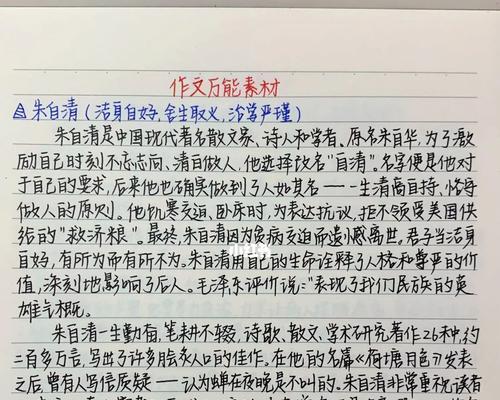 作文万能素材
朱自清(洁身自好、舍生取义、治学严瑾)
朱自清是中国现代著名散文家、诗人和学者。原名朱自华,为了激
励自己时刻不忘志向、清白做人,他选择改名"自清"。名字便是他对
于自己的要求,后来他也确实做到了人如其名——一生清高自持、恪守
做人的原则。他饥寒交迫、卧床时,为表达抗议,拒不领受美国供
给的"救济粮"。最终,朱自清因为贫病交迫而遗憾离世。君子当洁身
自好,有所为而有所不为。朱自清用自己的生命诠释了人格和尊严的价
值,深刻地影响了后人。毛泽东评价说:"表现了我们民族的英
雄气概。
朱自清一生勤奋,笔耕不辍,诗歌、散文、学术研究著作26种,约
二百多万言,写出了许多脍炙人口的佳作。在他的名篇《荷塘月色》发表
之后,曾有人写信质疑——认为蝉在夜晚是不叫的。朱自清非常重视读者
小红书